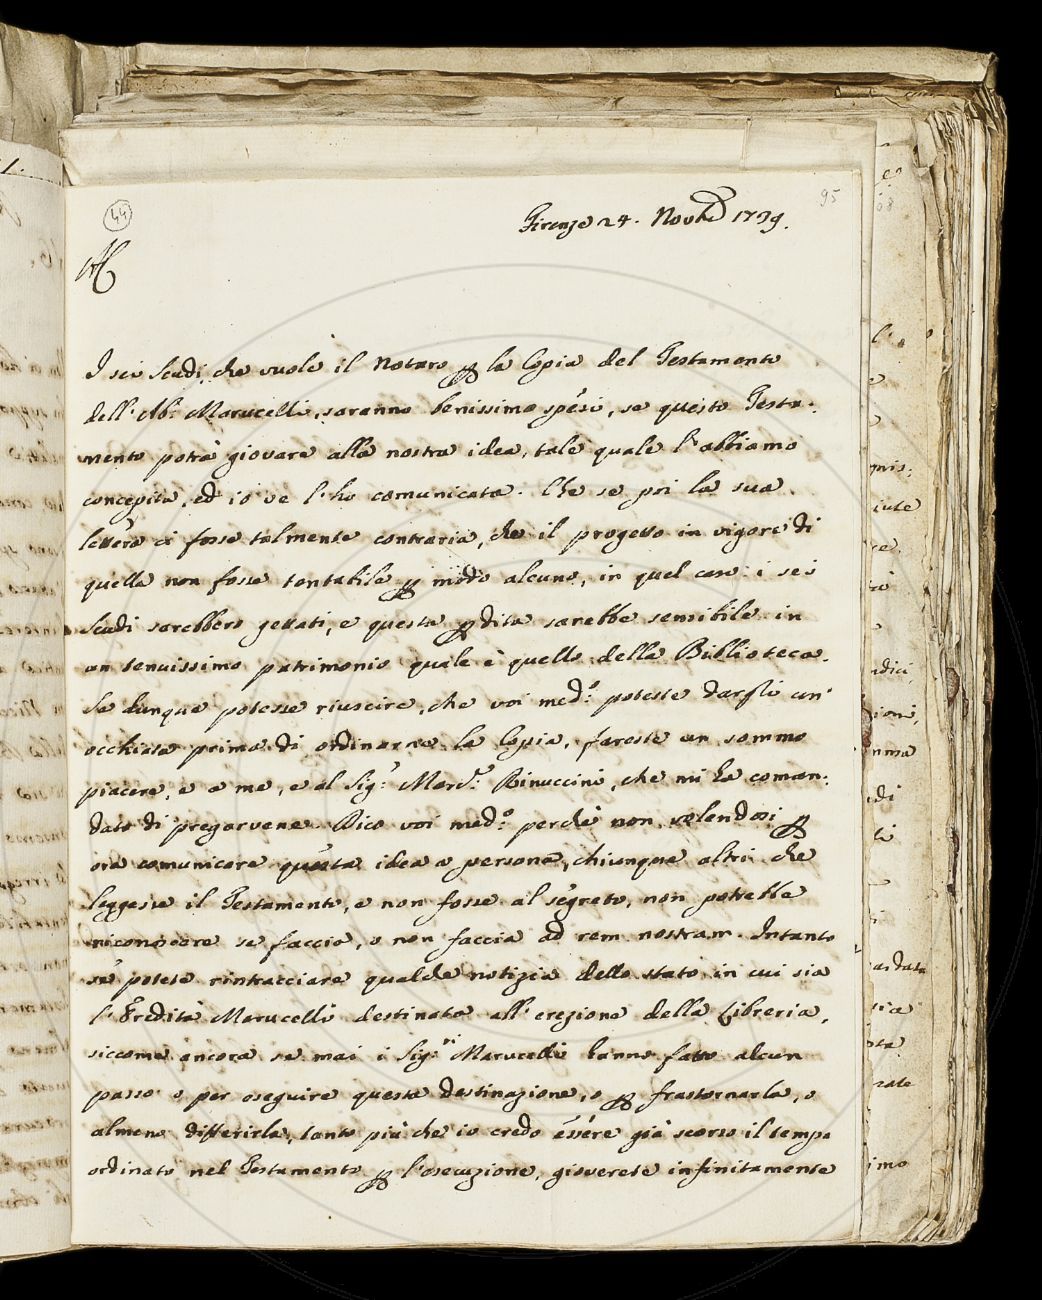 44
95
Firenze 24. Novbre 1739.
AC
I sei Scudi, che vuole il Notaro per la Copia del Testamento
dell' Ab.e Marucelli, saranno benissimo spesi, se questo Testa-
mento potrà giovare alla nostra idea, tale quale l'abbiamo
concepita, ed io ve l'ho comunicata. Che se poi la sua
lettera ci fosse talmente contraria, che il progetto in vigore di
quella non fosse tentabile per modo alcuno, in quel caso i sei
Scudi sarebbero gettati, e questa perdita sarebbe sensibile in
un tenuissimo patrimonio quale è quello della Biblioteca.
Se dunque potesse riuscire, che voi med.o poteste dargli un'
occhiata prima di ordinarne la Copia, fareste un sommo
piacere, e a me, e al Sig.r March.e Rinuccini, che mi ha coman-
dato di pregarvene. Dico voi med.o perché non volendosi per
ora comunicare questa idea a persona, chiunque altri che
leggesse il Testamento, e non fosse al segreto, non potrebbe
riconoscere se faccia, o non faccia ad rem nostram. Intanto
se potete rintracciare qualche notizia dello stato in cui sia
l'Eredità Marucelli destinata all' erezione della Libreria,
siccome ancora se mai i Sig.ri Marucelli hanno fatto alcun
passo o per eseguire questa destinazione, o per frastornarla, o
almeno differirla, tanto più che io credo essere già scorso il tempo
ordinato nel Testamento per l'esecuzione, gioverete infinitamente